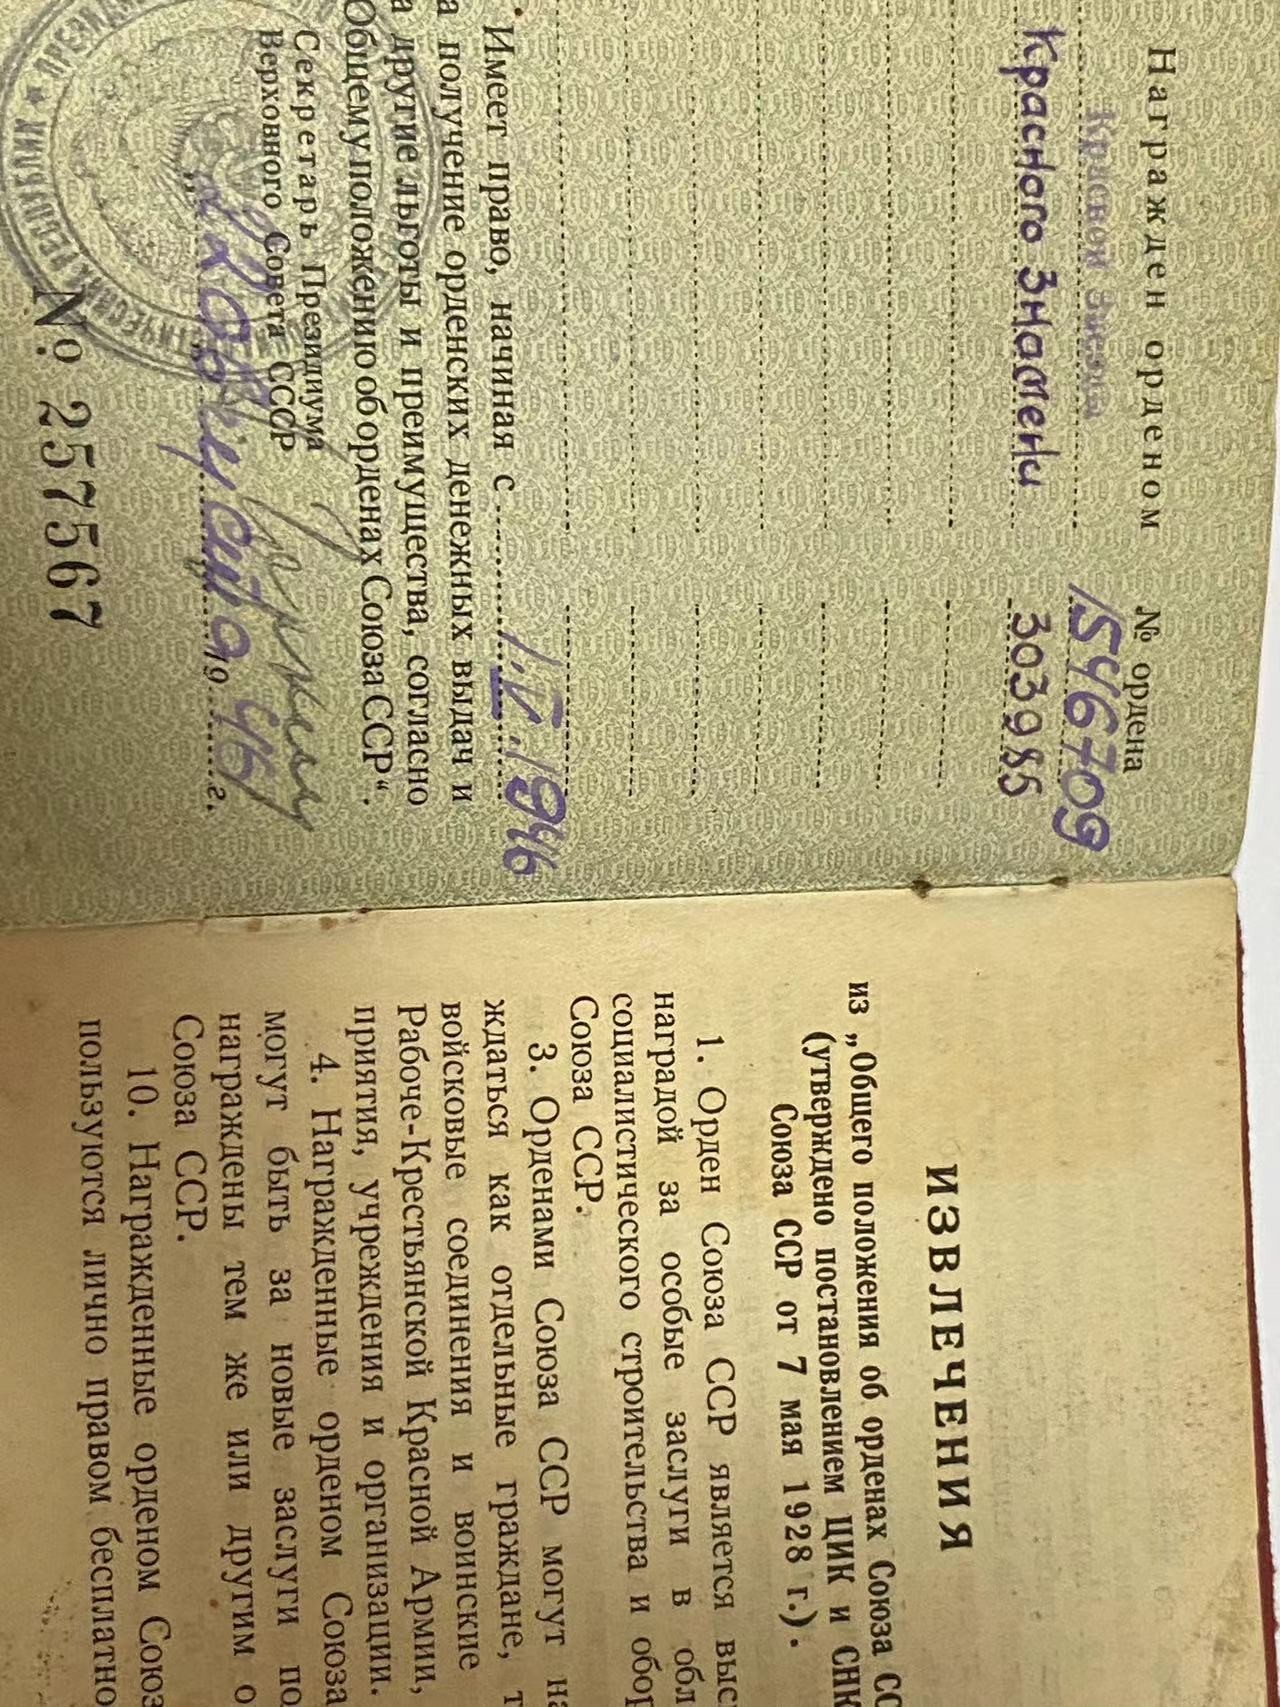 Награжден орденом № ордена
Красной Звезды 1546709
Красного Знамени 303985
Имеет право, начиная с 1.V.1946
а получение орденских денежных выдач и
а другие льготы и преимущества, согласно
Общему положению об орденах Союза ССР“.
Секретарь Президиума
Верховного Совета СССР
августа 1946 г.
№ 257567
ИЗВЛЕЧЕНИЯ
из „Общего положения об орденах Союза СС
(утверждено постановлением ЦИК и СНК
Союза ССР от 7 мая 1928 г.).
1. Орден Союза ССР является выс
наградой за особые заслуги в обл
социалистического строительства и обор
Союза ССР.
3. Орденами Союза ССР могут на
ждаться как отдельные граждане, т
войсковые соединения и воинские
Рабоче-Крестьянской Красной Армии,
приятия, учреждения и организации.
4. Награжденные орденом Союза
могут быть за новые заслуги по
награждены тем же или другим о
Союза ССР.
10. Награжденные орденом Союз
пользуются лично правом бесплатно